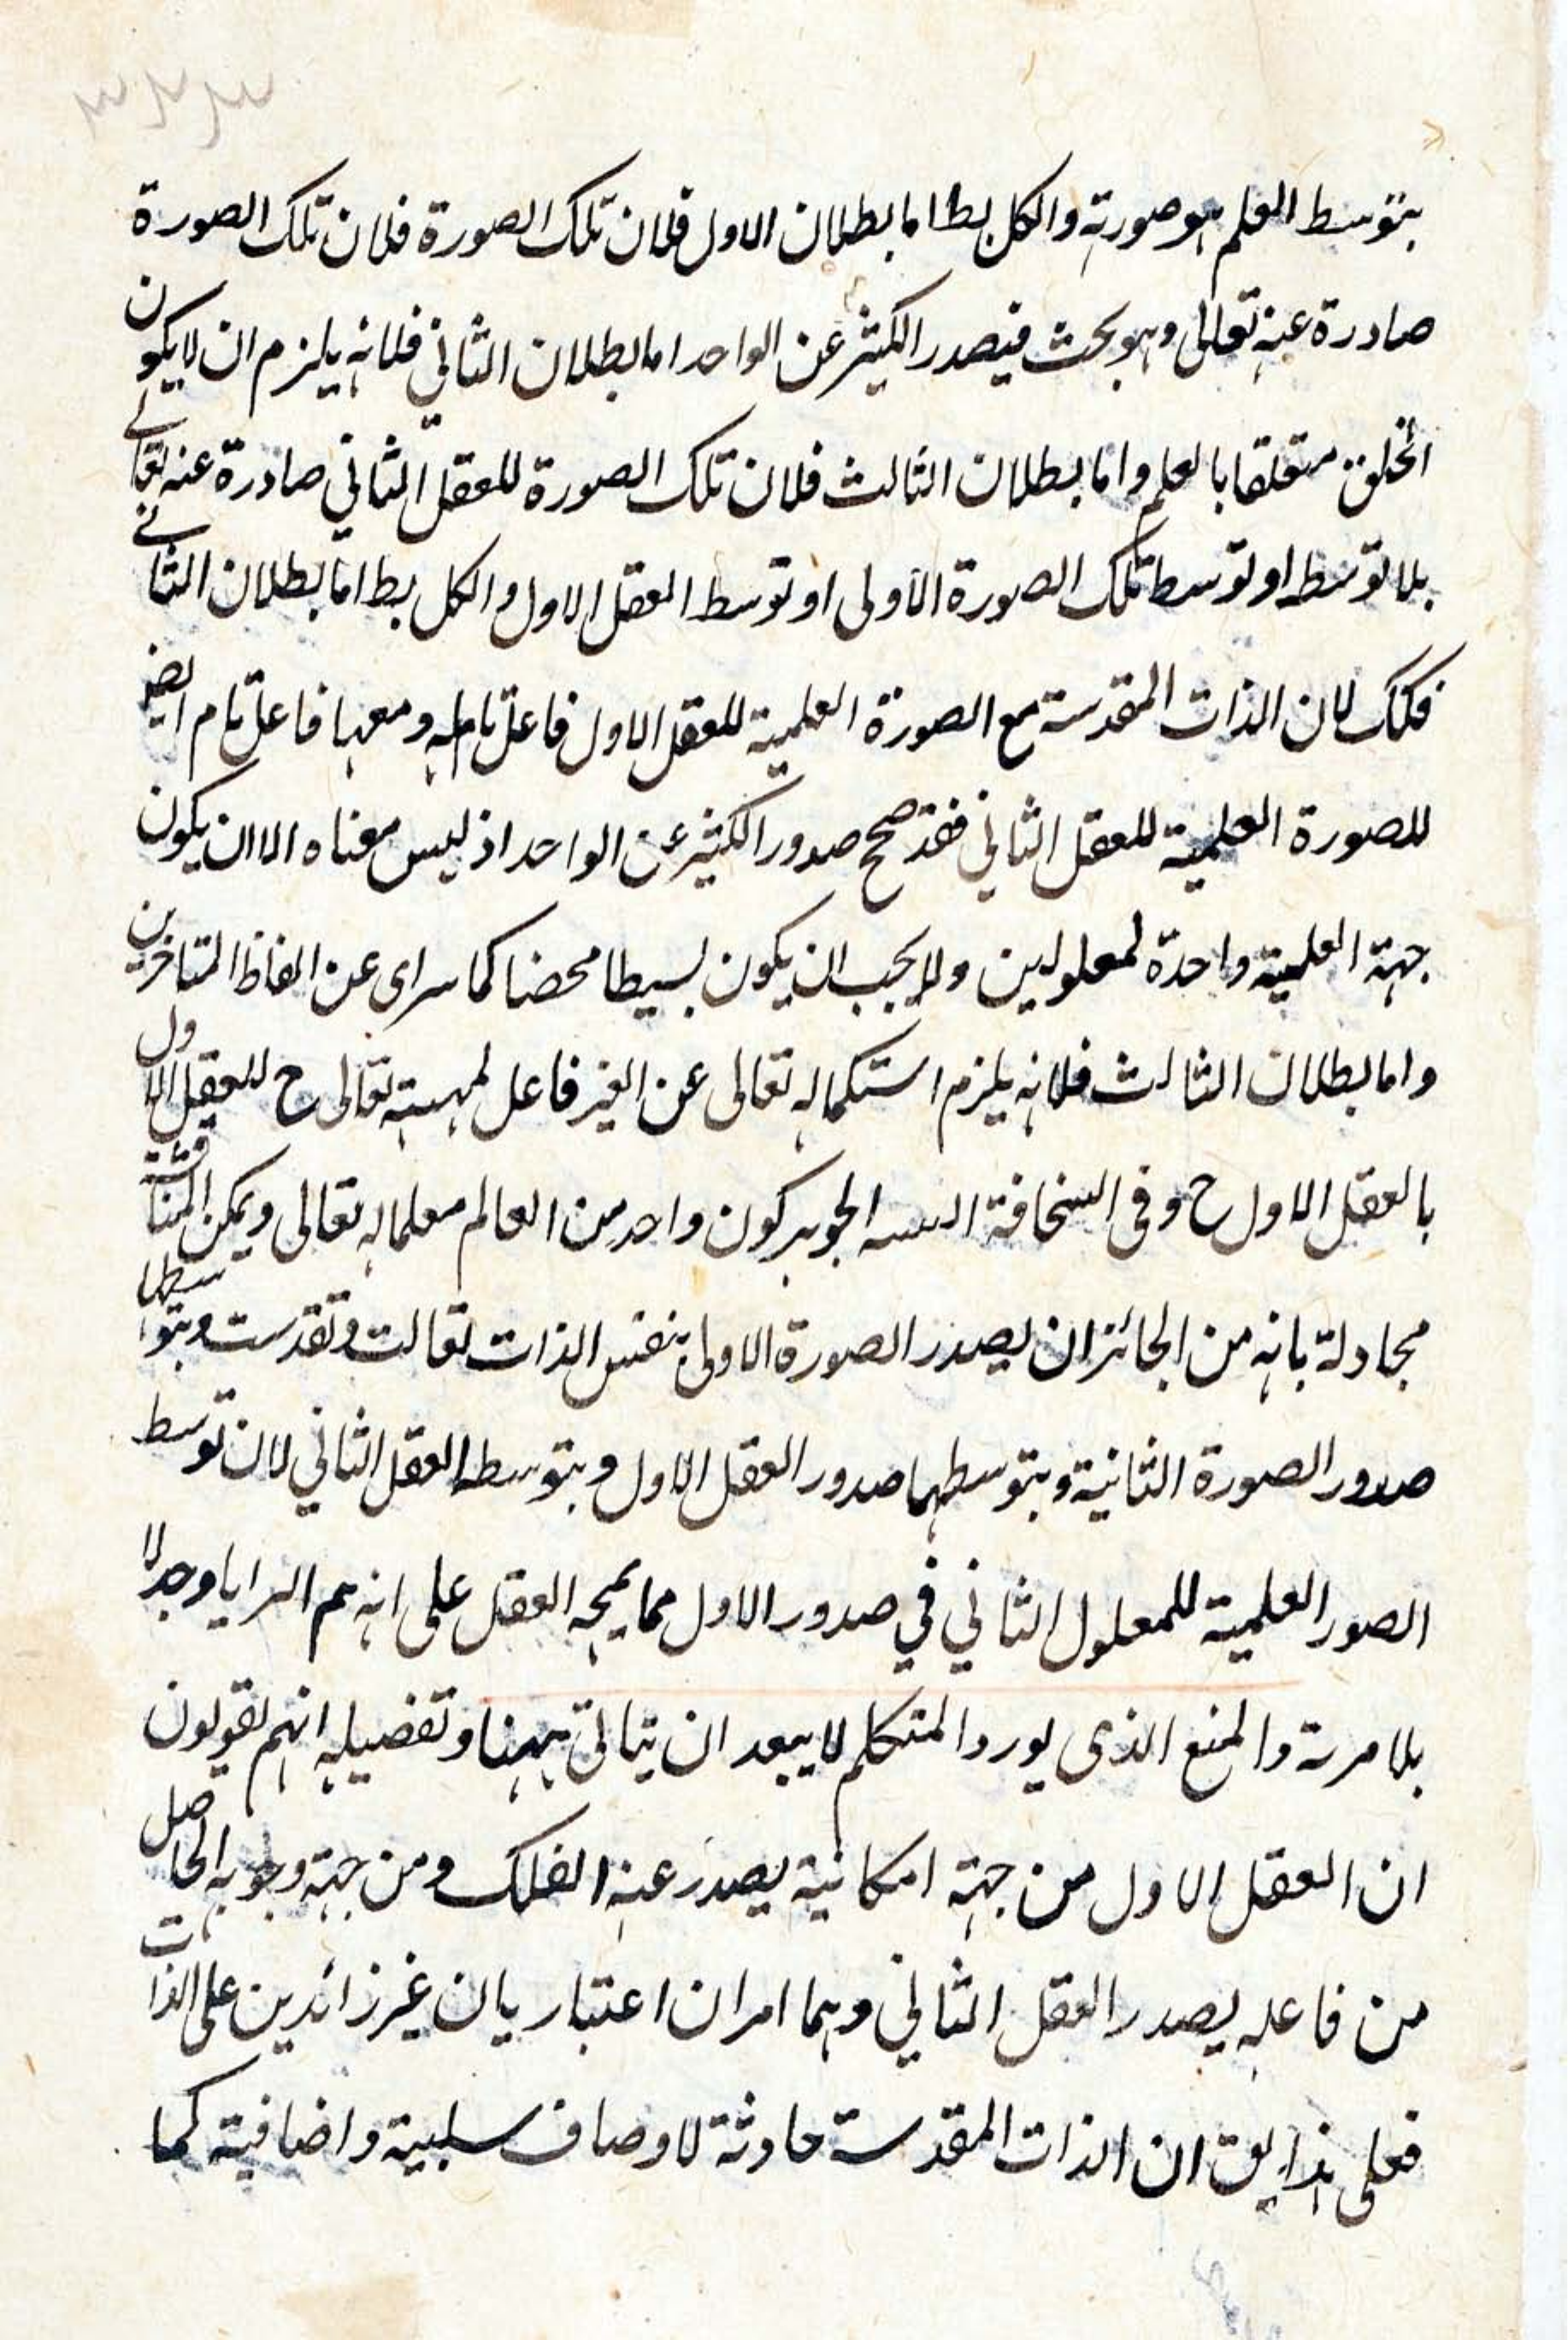 بتوسط العلم هو صورته والكل بط اما بطلان الاول فلان تلك الصورة فلان تلك الصورة
صادرة عنه تعالى وهو بحث فيصدر الكثير عن الواحد اما بطلان الثاني فلانه يلزم ان لا يكون
الخلق متعلقا بالعلم واما بطلان الثالث فلان تلك الصورة للعقل الثاني صادرة عنه تعالے
بلا توسط او توسط تلك الصورة الاولى او توسط العقل الاول والكل بط اما بطلان الثانے
فكك لان الذات المقدسة مع الصورة العلمية للعقل الاول فاعل تام له ومعها فاعل تام ايض
للصورة العلمية للعقل الثاني فقد صح صدور الكثير عن الواحد اذ ليس معناه الا ان يكون
جهة العلمية واحدة لمعلولين ولا يجب ان يكون بسيطا محضا كما سراى عن الفاظ المتاخرين
واما بطلان الثالث فلانه يلزم استكماله تعالى عن الغير فاعل لمهيته تعالى ح للعقل الاول
بالعقل الاول ح وفى السخافة الجوهر كون واحد من العالم معلما له تعالى ويمكن المناقشة
مجادلة بانه من الجائز ان يصدر الصورة الاولى بنفس الذات تعالت وتقدست وبتوسطها
صدور الصورة الثانية وبتوسطهما صدور العقل الاول وبتوسطه العقل الثاني لان توسط
الصور العلمية للمعلول الثاني في صدور الاول مما يمجه العقل على انه هم وجدلا
بلا مرية والمنع الذى يورد المتكلم لا يبعد ان يتاتى ههنا وتفصيله انهم يقولون
ان العقل الاول من جهة امكانية يصدر عنه الفلك ومن جهة وجوبه الحاصل
من فاعله يصدر العقل الثاني وهما امران اعتباريان غير زائدين على الذات
فعلى هذا يق ان الذات المقدسة حادثة لاوصاف سلبية واضافية كما